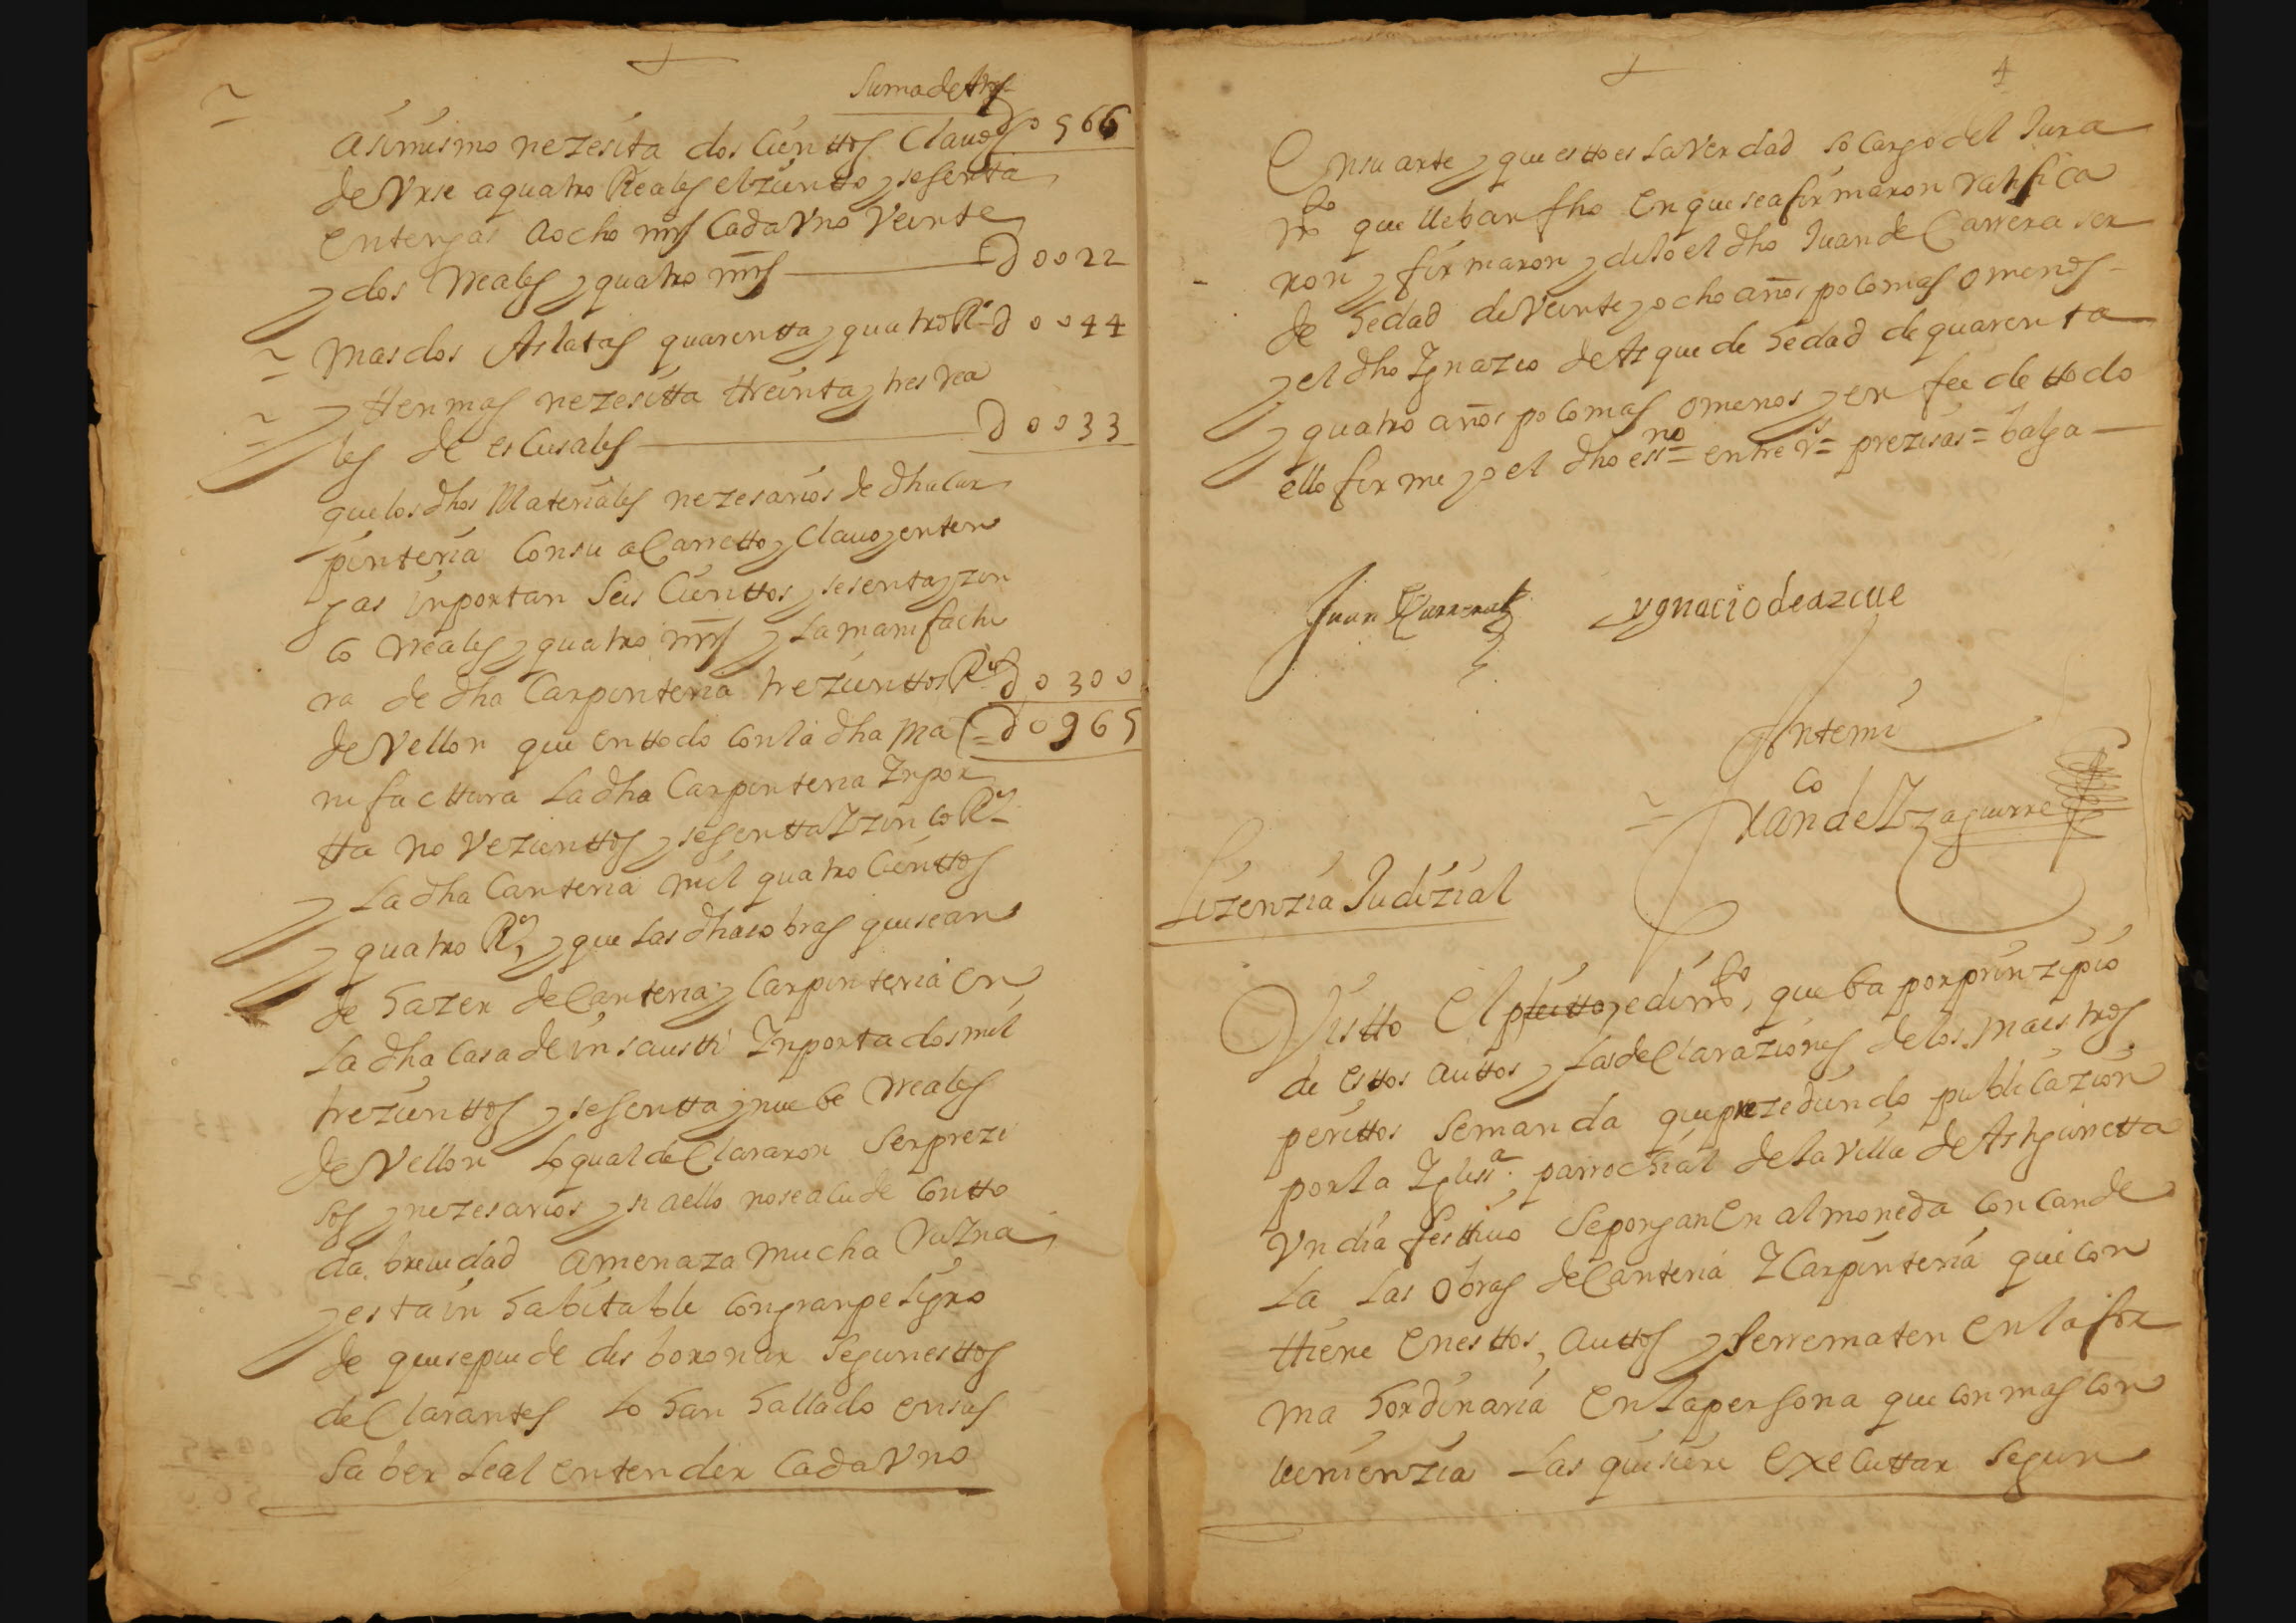 Suma de atrs
D0 566
Asimismo nezesita dos Cienttos Clauos
de Vrse a quatro Reales el ziento y sesenta
entengas a ocho mrs Cada Vno Veinte
y dos rreales y quatro mrs D0022
mas dos Aslatas quarentta y quatro Rs D0044
Yten mas nezesitta ttreinta y tres rea
les de escusales D0033
que los dhos Materiales nezesarios de dha Car
pinteria Con su aCarretto y Clauo y enten
gas inportan Seis Cienttos y sesenta y zin
co rreales y quatro mrs y La manifactu
ra de dha Carpinteria trezienttos Rs D0300
de Vellon que en ttodo con la dha ma = D0965
nifacttura La dha Carpinteria Ynpor
tta novezienttos y sesentta Y zinco Rs
y La dha Canteria mil quatro Cienttos
y quatro Rs, y que Las dhas obras que se an
de hazer de Canteria y Carpinteria en
La dha Casa de insaustti Ynporta dos mil
trezienttos y sesentta y nuebe rreales
de Vellon Lo qual deClararon Ser prezi
sos y nezesarios y si a ello no se acude Con tto
da breuedad amenaza mucha Ruyna
y esta in habitable con gran peligro
de que se puede desboronar Segun esttos
deClarantes Lo han hallado en sus
Saber Leal entender Cada Vno
4
En su arte y que estto es La Verdad so cargo del Jura
mto que lleban fho en que se afirmaron ratifica
ron y firmaron y dijo el dho Juan de Carrera ser
de hedad de Veinte y ocho años poco mas o menos
y el dho Ygnazio de Azque de hedad de quarenta
y quatro años poco mas o menos y en fee de ttodo
ello firme yo el dho essno = entre rs = prezisas = balga
Juan Carrera
Ygnacio de azcue
Ante mi
Franco de Yzaguirre
Lizenzia Judizial
Visto El pleitto y edimto, que ba por prinzipio
de esttos auttos y Las deClaraziones de los maestros
perittos Se manda que prezediendo publicazion
por la Yglesa parrochial de la Villa de Astigarretta
Vn dia festtiuo Se pongan En almoneda con cande
La Las obras de Canteria Y Carpinteria que con
ttiene En esttos, Auttos y Se rrematen En la for
ma hordinaria En la persona que con mas con
ueniencia Las quisiere Executtar Segun